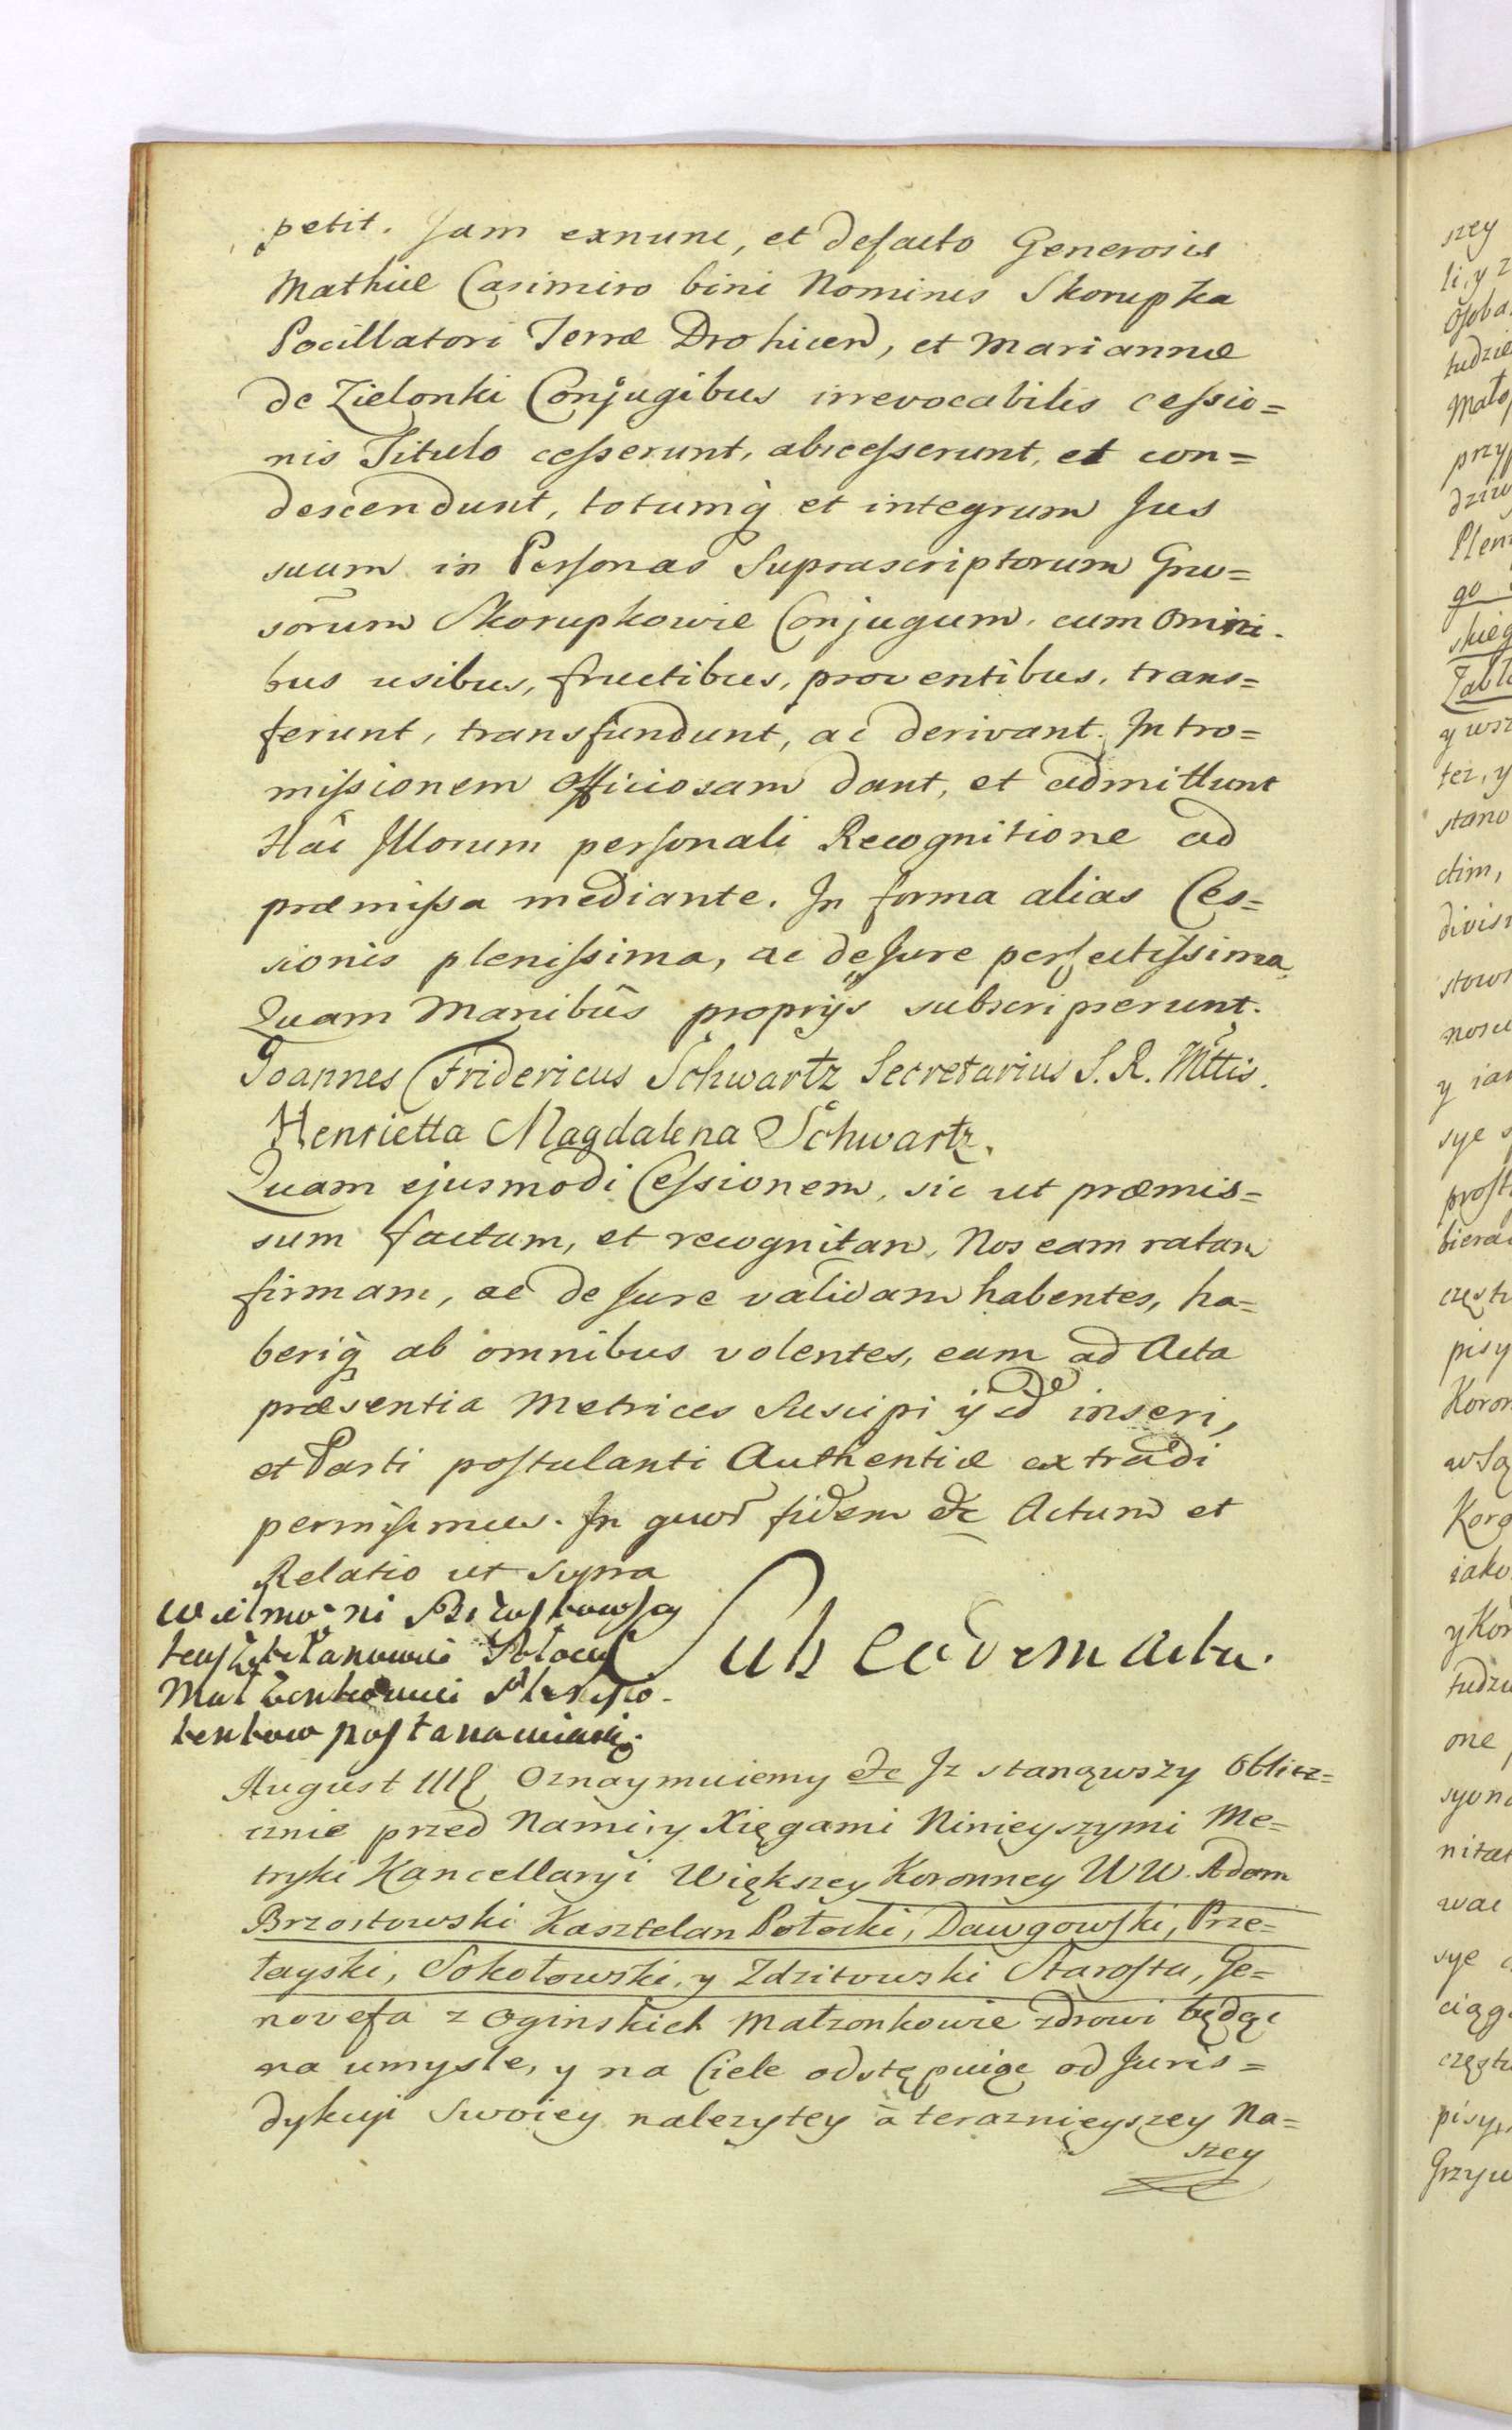 petit. Jam exnunc, et defacto Generosis
Mathiæ Casimiro bini Nominis Skorupka
Pocillatori Terræ Drohicen, et Mariannæ
de Zielonki Conjugibus irrevocabilis cessio=
nis Titulo cesserunt, abscesserunt, et con=
descendunt, totumq et integrum Jus
suum in Personas Suprascriptorum Gnro=
sorum Skorupkowie Conjugum, cum Omni-
bus usibus, fructibus, proventibus, trans=
ferunt, transfundunt, ac derivant. Intro=
missionem officiosam dant, et admittunt
Hac Illorum personali Recognitione ad
præmissa mediante. In forma alias Ces=
sionis plenissima, ac de Jure perfectissima.
Quam Manibus proprijs subscripserunt.
Joannes Fridericus Schwartz Secretarius S. R. Mttis.
Henrietta Magdalena Schwartz.
Quam ejusmodi Cessionem, sic ut præmis=
sum factam, et recognitam, Nos eam ratam
firmam, ac de Jure validam habentes, ha=
beriq ab omnibus volentes, eam ad Acta
præsentia Metrices Suscipi ijsdem inseri,
et Parti postulanti Authentice extradi
permisimus. In quor fidem etc Actum et
Relatio ut supra
Wielmożni Brzostowscy
Kasztelanowie Połoccy
Małżonkowie Plenipo-
tentow postanawiaią.
Sub eadem acta.
August III Oznaymuiemy etc Iz stanąwszy Oblicz=
cznie przed Nami, y Xięgami Ninieyszymi Me=
tryki Kancellaryi Większey Koronney WW. Adam
Brzostowski Kasztelan Połocki, Dawgowski, Prze=
łayski, Sokołowski, y Zdzitowski Starosta, Ge=
novefa z Oginskich Małzonkowie zdrowi będąc
na umysle, y na Ciele odstępuiąc od Juris=
dykcyi Swoiey nalezytey à teraznieyszey Na=
szey